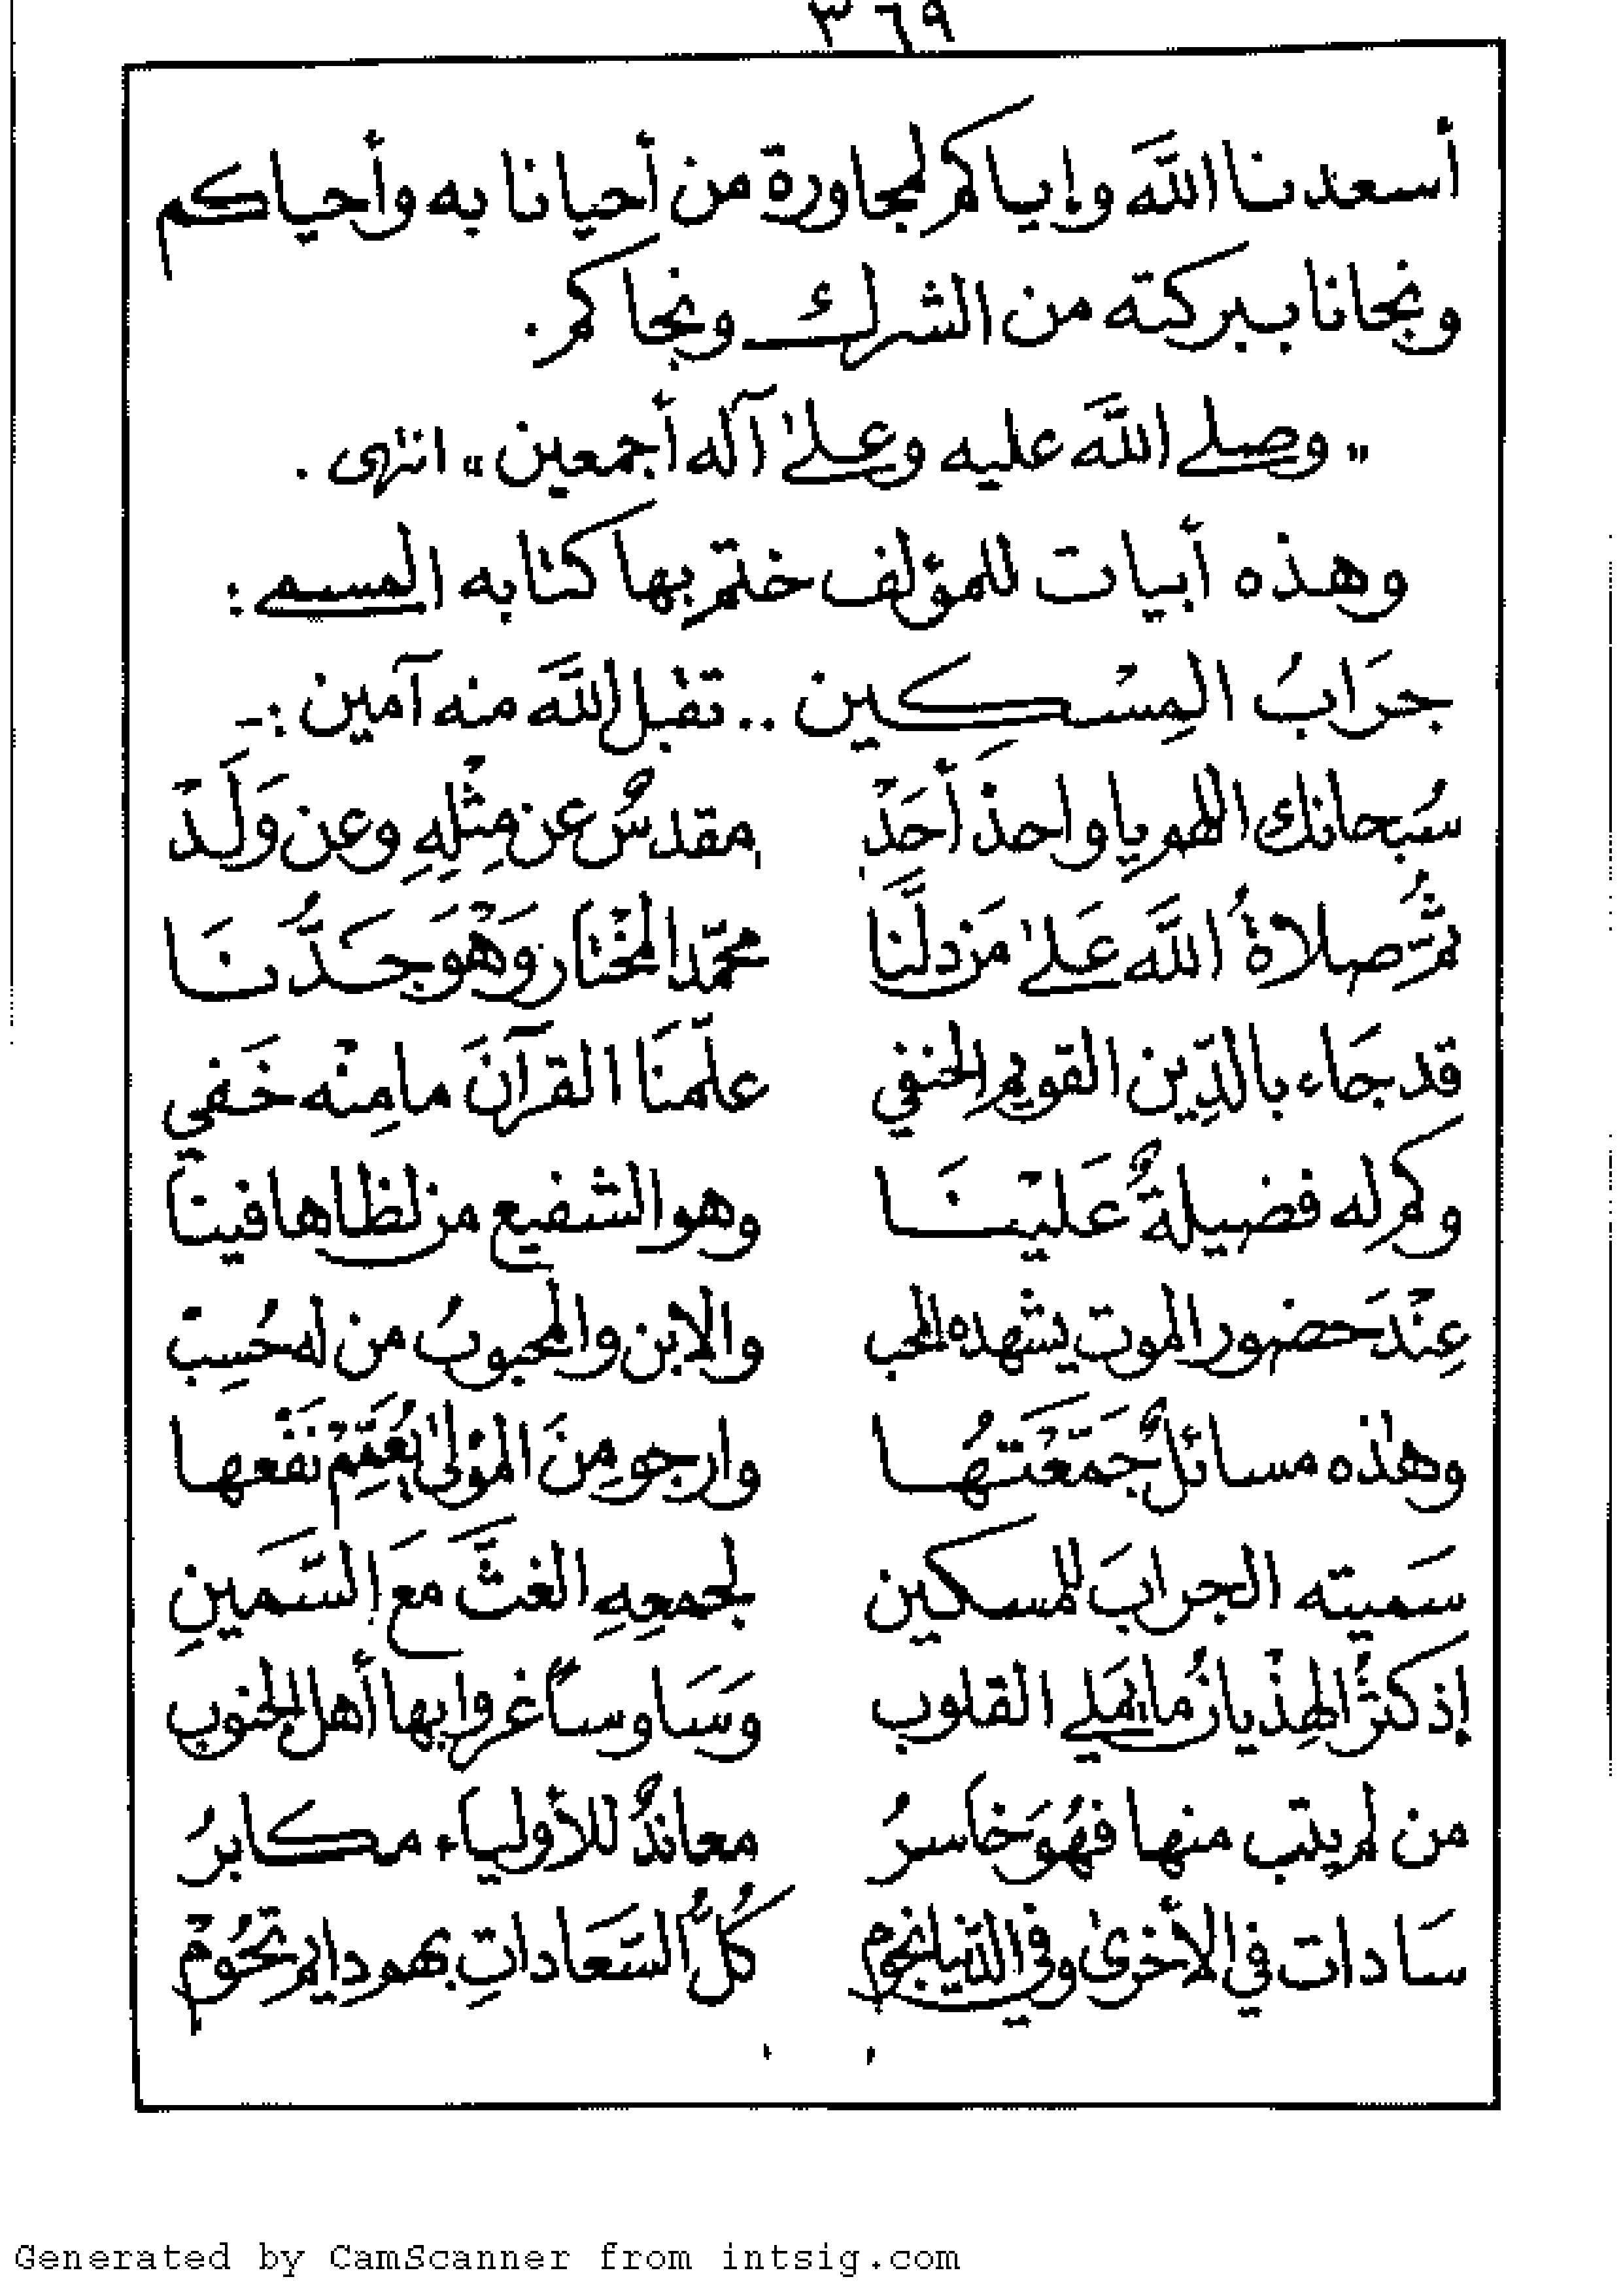 ٣٦٩
أسعدنا اللَّه وإياكم لمجاورة من أحيانا به وأحياكم
ونجانا ببركته من الشرك ونجاكم.
„وصلى اللَّه عليه وعلىٰ آله أجمعين„ انتهى.
وهذه أبيات للمؤلف ختم بها كتابه المسمى:
جِرَابُ المِسْكين .. تقبل اللَّه منه آمين :-
سُبحانك اللهم يا واحدْ أحَدْ مقدسٌ عن مِثْلِهِ وعن وَلَدْ
ثمَّ صلاةُ اللَّه عَلىٰ مَن دلَّنا محمّد المخْتار وَهْوَ جَدُّنَا
قد جَاء بالدِّين القويم الحنفي علّمنَا القرآنَ ما مِنْه خَفي
وكم له فضيلةٌ عَليْنَا وهو الشفيع من لظاها فينا
عِنْدَ حضور الموت يشهده المحب والابن والمحبوبُ من له حُسِبْ
وهٰذه مسائلٌ جَمَّعْتهُا وارجو مِنَ الموْلىٰ يُعَمِّمْ نَفْعها
سَميته الجرابَ للمسكين لجمعِهِ الغثَّ معَ السَّمينِ
إذ كثرُ الهذيانُ ما يملي القلوب وَسَاوساً غروا بها أهل الجنوب
من لم يتب منها فهُوَ خاسرُ معاندٌ للأولياء مكابرُ
سَادات في الأخرىٰ وفي الدّنيا نجوم كُلُّ السَّعاداتِ بهم دايم تحُومْ
Generated by CamScanner from intsig.com